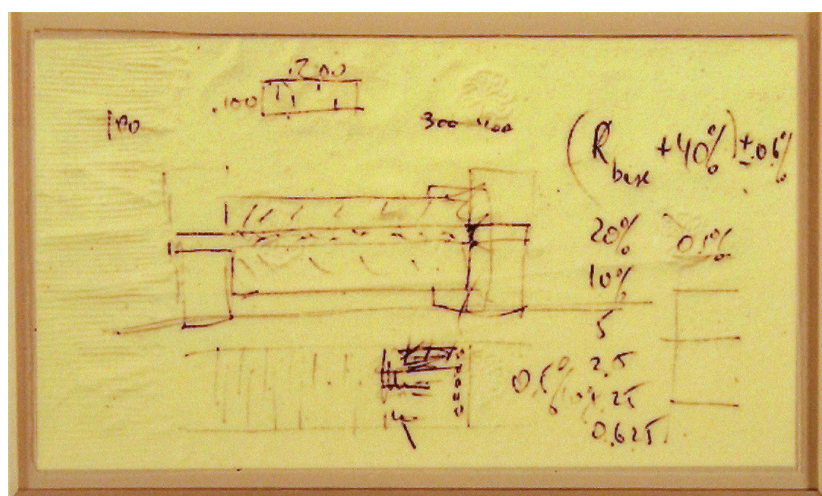 .200
.100
100
300 400
(R base +40%) ± 0.6%
20%
0.1%
10%
5
2.5
1.25
0.625